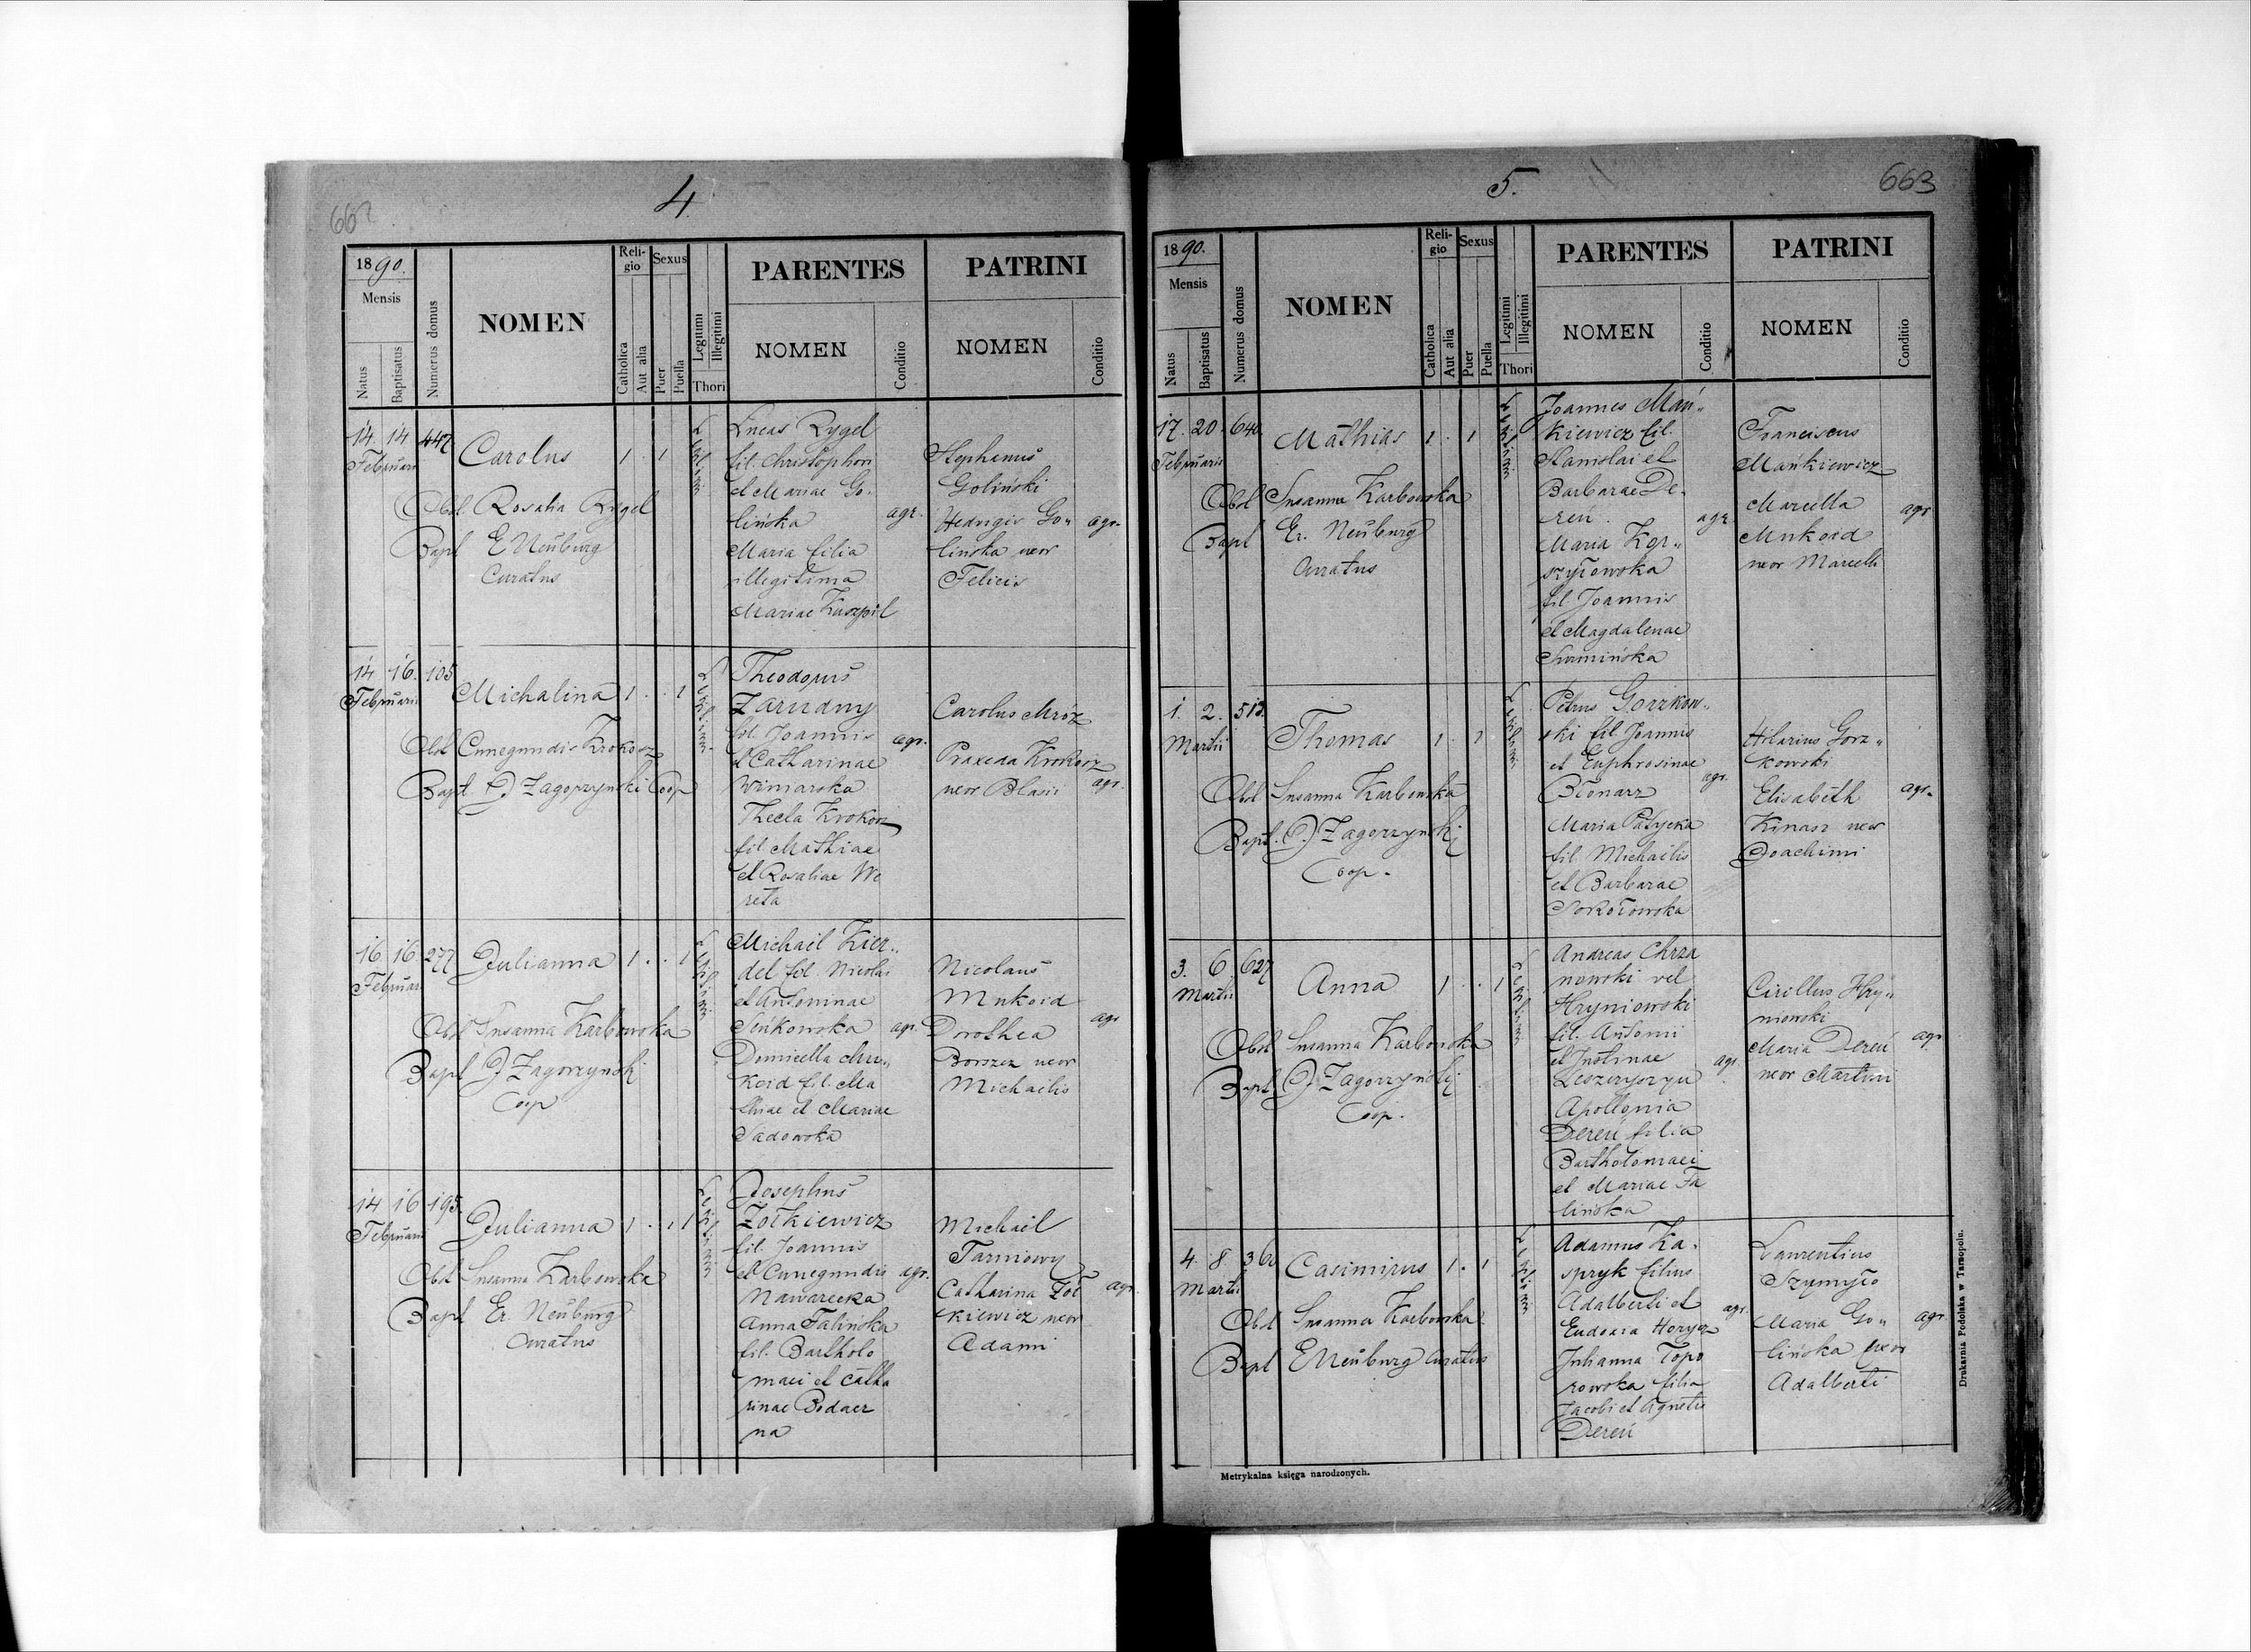 4
1890.
Mensis
Natus
Baptisatus
Numerus domus
NOMEN
Reli-
gio
Catholica
Aut alia
Sexus
Puer
Puella
Legitimi
Illegitimi
Thori
PARENTES
NOMEN
Conditio
PATRINI
NOMEN
Conditio
14. 14 447
Februarii
Carolus
1 . 1
Obst. Rosalia Rygel
Bapt E Neŭburg
Curatus
Lucas Rygel
fil. Christophori
et Mariae Go-
lińska
Maria filia
illegitima
Mariae Kaszpil
agr.
Stephanus
Goliński
Hedvigis Go„
linska uxor
Felicis
agr.
14 16. 105
Februarii
Michalina
1 . . 1
Obst Cunegundis Krokosz
Bapt. J Zagorzyński Coop
Theodorus
Zarudny
fil. Joannis
et Catharinae
Winiarska
Thecla Krokosz
fil Mathiae
et Rosaliae We
reta
agr.
Carolus Mróz
Praxeda Krokosz
uxor Blasii
agr.
16 16 277
Februarii
Julianna
1 . . 1
Obst Susanna Karbowska
Bapt J Zagorzyński
Coop
Michaël Kier„
del fil. Nicolai
et Antoninae
Seńkowska
Domicella Mu„
koid fil. Ma
thiae et Mariae
Sadowska
agr.
Nicolaus
Mukoid
Drothea
Borszcz uxor
Michaelis
agr
14 16 195.
Februarii
Julianna
1 . . 1
Obst Susanna Karbowska
Bapt Er. Neŭburg
Curatus
Josephus
Żółkiewicz
fil. Joannis
et Cunegundis
Nawarecka
Anna Falińska
fil. Bartholo
maei et Catha
rinae Bodacz
na
agr.
Michaël
Tarnowy
Catharina Żół
kiewicz uxor
Adami
agr.
5.
663
1890.
Mensis
Natus
Baptisatus
Numerus domus
NOMEN
Reli-
gio
Catholica
Aut alia
Sexus
Puer
Puella
Legitimi
Illegitimi
Thori
PARENTES
NOMEN
Conditio
PATRINI
NOMEN
Conditio
17. 20. 640.
Februarii
Mathias
1 . 1
Obst Susanna Karbowska
Bapt Er. Neŭburg
Curatus
Joannes Mań„
kiewicz fil.
Stanislai et
Barbarae De-
reń.
Maria Kor„
szyłowska
fil. Joannis
et Magdalenae
Surmińska
agr.
Franciscus
Mańkiewicz
Marcella
Mukoid
uxor Marcelli
agr
1. 2. 513.
Martii
Thomas
1 . 1
Obst Susanna Karbowska
Bapt. J Zagorzyński
Coop.
Petrus Gorzkow„
ski fil Joannis
et Euphrosinae
Błonarz
Maria Patycka
fil. Michaëlis
et Barbarae
Sokołowska
agr.
Hilarius Gorz„
kowski
Elisabeth
Kinasz uxor
Joachimi
agr.
3. 6 627
Martii
Anna
1 . . 1
Obst Susanna Karbowska
Bapt J Zagorzyński
Coop.
Andreas Chrza
nowski vel
Hryniowski
fil. Antonii
et Justinae
Leszczyszyn
Apollonia
Dereń filia
Bartholomaei
et Mariae Fa
lińska
agr.
Cirillus Hry„
niowski
Maria Dereń
uxor Martini
agr
4 8 360
Martii
Casimirus
1 . 1
Obst Susanna Karbowska
Bapt E Neŭburg Curatus
Adamus Ka-
spryk filius
Adalberti et
Eudoxia Horycz
Julianna Topo
rowska filia
Jacobi et Agnetis
Dereń
agr.
Laurentius
Szymyło
Maria Go„
lińska uxor
Adalberti
agr
Metrykalna księga narodzonych.
Drukarnia Podolska w Tarnopolu.